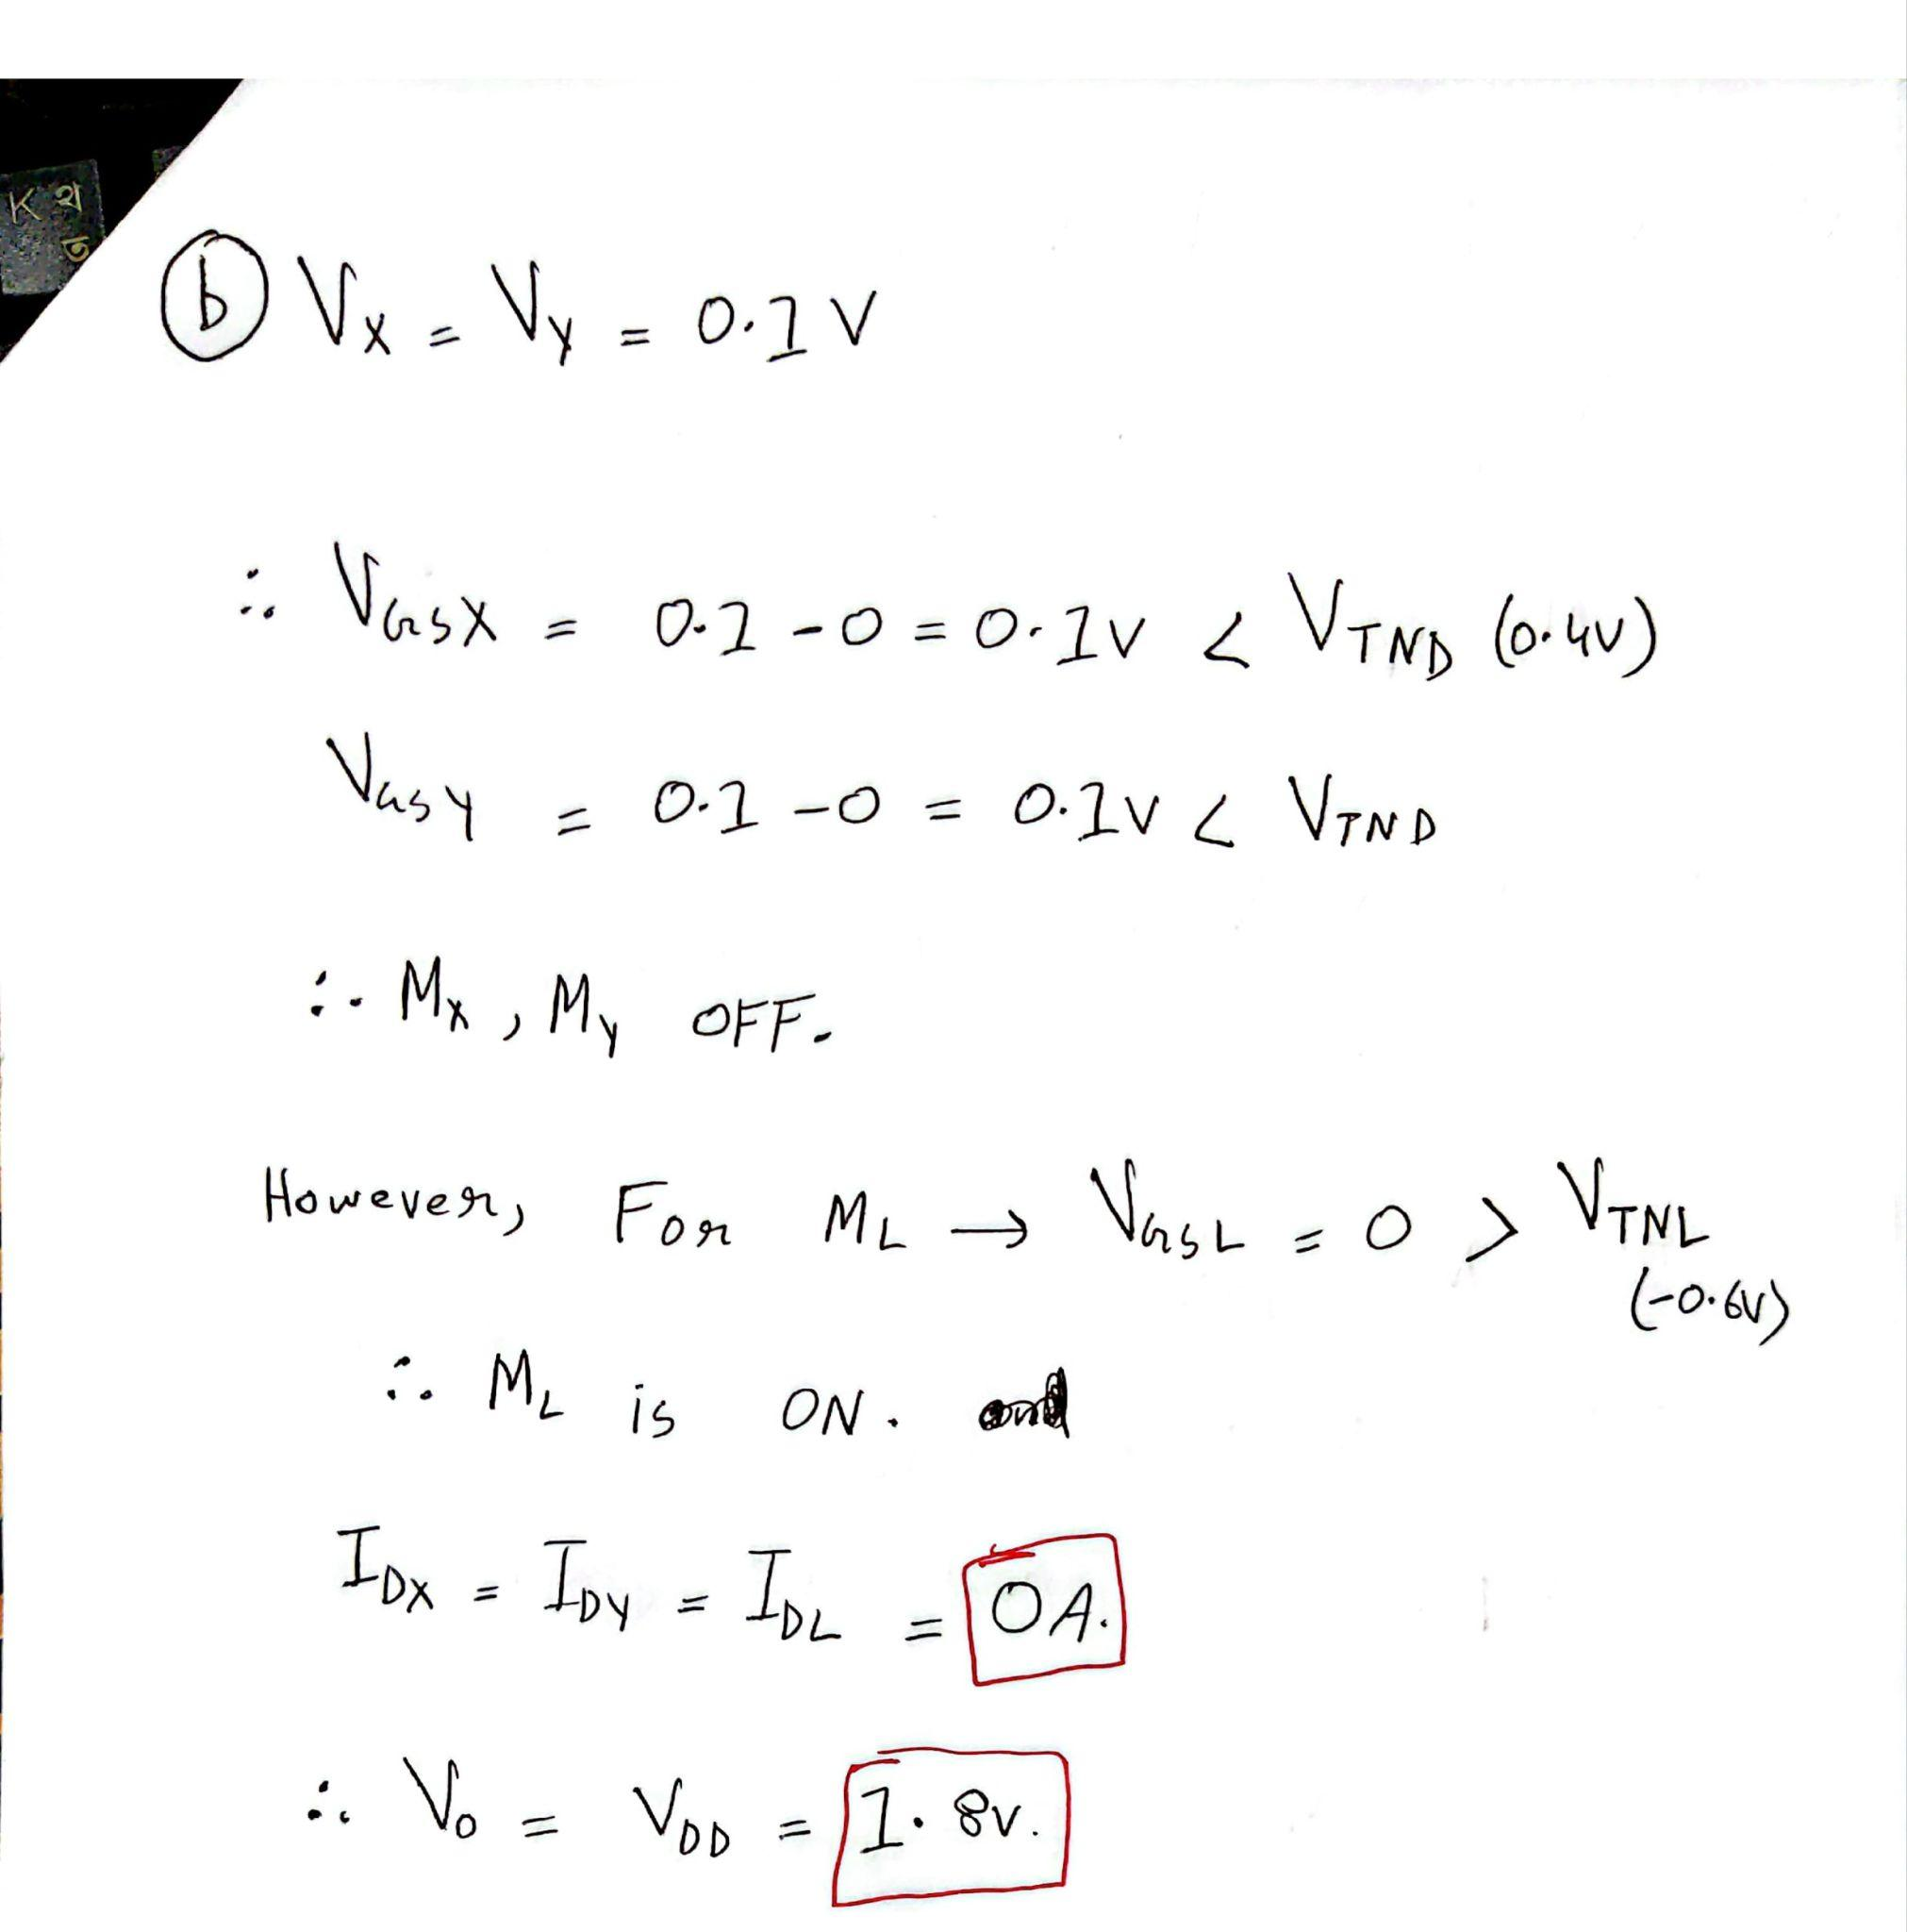 K থ
ত
ⓑ Vx = Vy = 0.1V
∴ VGSX = 0.1 - 0 = 0.1V < VTND (0.4V)
VGSY = 0.1 - 0 = 0.1V < VTND
∴ Mx, My OFF.
However, For ML → VGSL = 0 > VTNL
(-0.6V)
∴ ML is ON.
IDX = IDY = IDL = 0A.
∴ Vo = VDD = 1.8V.